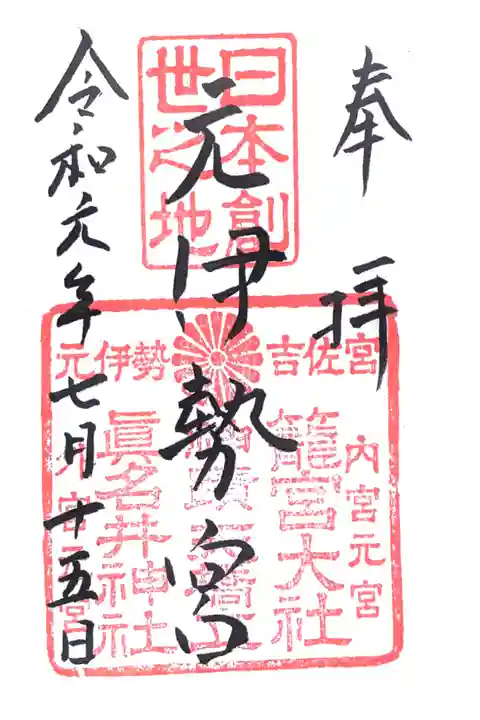 奉拝
日本創
世之地
元伊勢宮
吉佐宮
元伊勢
内宮元宮
籠宮大社
眞名井神社
令和元年七月十五日